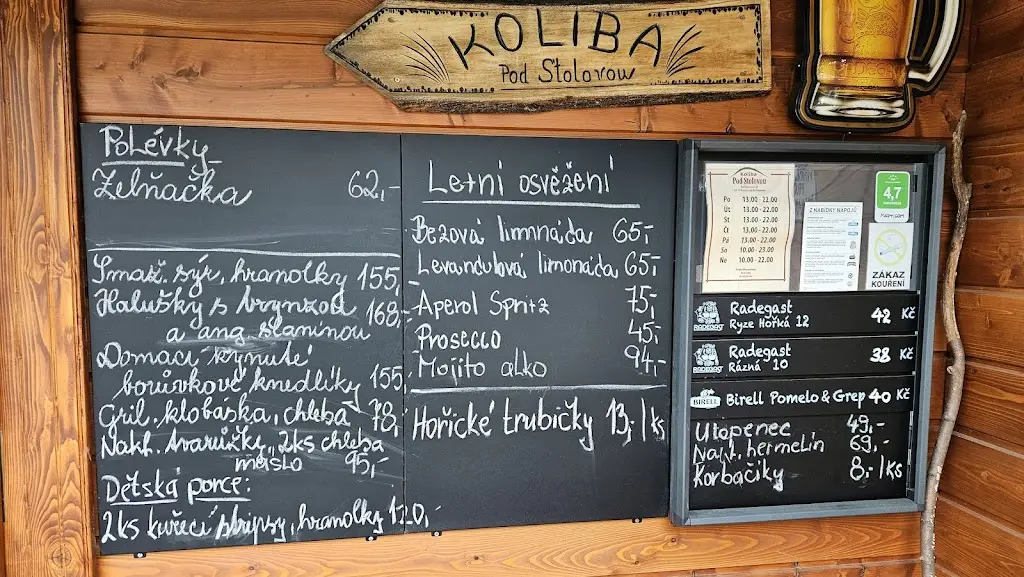 KOLIBA
Pod Stolovou
Polévky
Zelňačka 62,-
Smaž. sýr, hranolky 155,
Halušky s bryndzou 168,-
a ang. slaninou
Domácí kynuté
borůvkové knedlíky 155,
Gril. klobáska, chleba 78,
Nakl. tvarůžky, 2ks chleba
máslo 95,-
Dětská porce:
2ks kuřecí stripsy, hranolky 120,-
Letní osvěžení
Bezová limnáda 65,-
Levandulová limonáda 65,-
Aperol Spritz 75,-
Prosecco 45,-
Mojito alko 94,-
Hořické trubičky 13,-/ks
Koliba
Pod Stolovou
Po 13.00 - 22.00
Út 13.00 - 22.00
St 13.00 - 22.00
Čt 13.00 - 22.00
Pá 13.00 - 22.00
So 10.00 - 23.00
Ne 10.00 - 22.00
Z NABÍDKY NÁPOJŮ
4,7
ZÁKAZ
KOUŘENÍ
RADEGAST
Radegast
Ryze Hořká 12 42 Kč
RADEGAST
Radegast
Rázná 10 38 Kč
BIRELL Birell Pomelo & Grep 40 Kč
Utopenec 49,-
Nakl. hermelín 69,-
Korbáčiky 8,-/ks